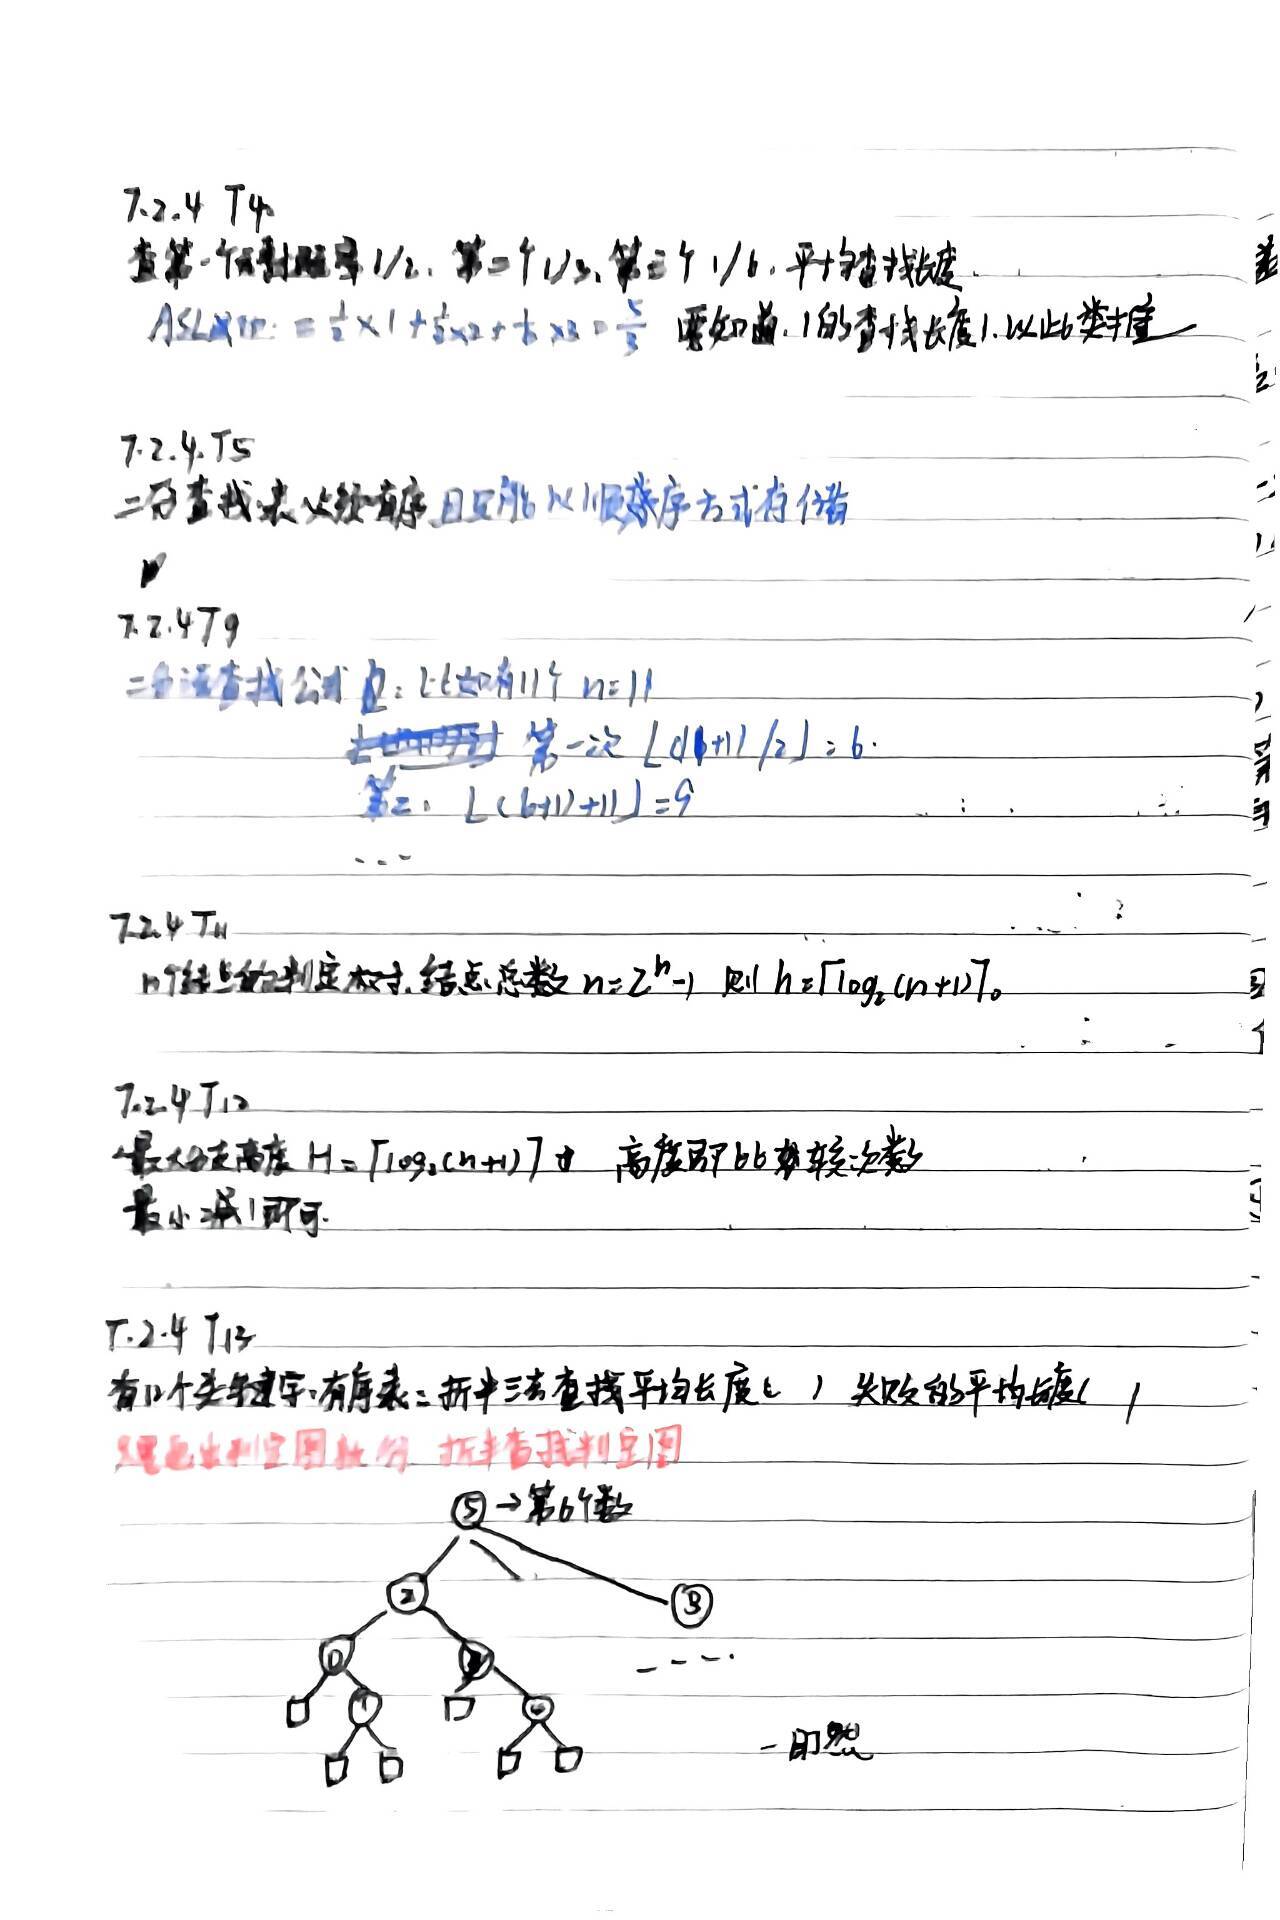 7.2.4 T4
查第一个对象概率1/2、第二个1/3、第三个1/6,平均查找长度
ASL成功 = 1/2×1+1/3×2+1/6×3=5/3 要知道,1的查找长度1.以此类推
7.2.4.T5
二分查找表必须有序且只能以顺序方式存储
7.2.4T9
二分法查找公式 比如有11个 n=11
第一次 ⌊(1+11)/2⌋=6.
第二. ⌊(6+1)+11⌋=9
...
7.2.4 T11
n个结点的判定树,结点总数 n=2^h-1 则 h=⌈log₂(n+1)⌉。
7.2.4 T12
最大 高度 H=⌈log₂(n+1)⌉ 高度即 比较次数
最小减1即可.
7.2.4 T13
有11个关键字有序表 折半法查找平均长度( ) 失败的平均长度( )
画出判定图 折半查找判定图
5 →第6个数
2
8
0
3
....
1
4
一目了然